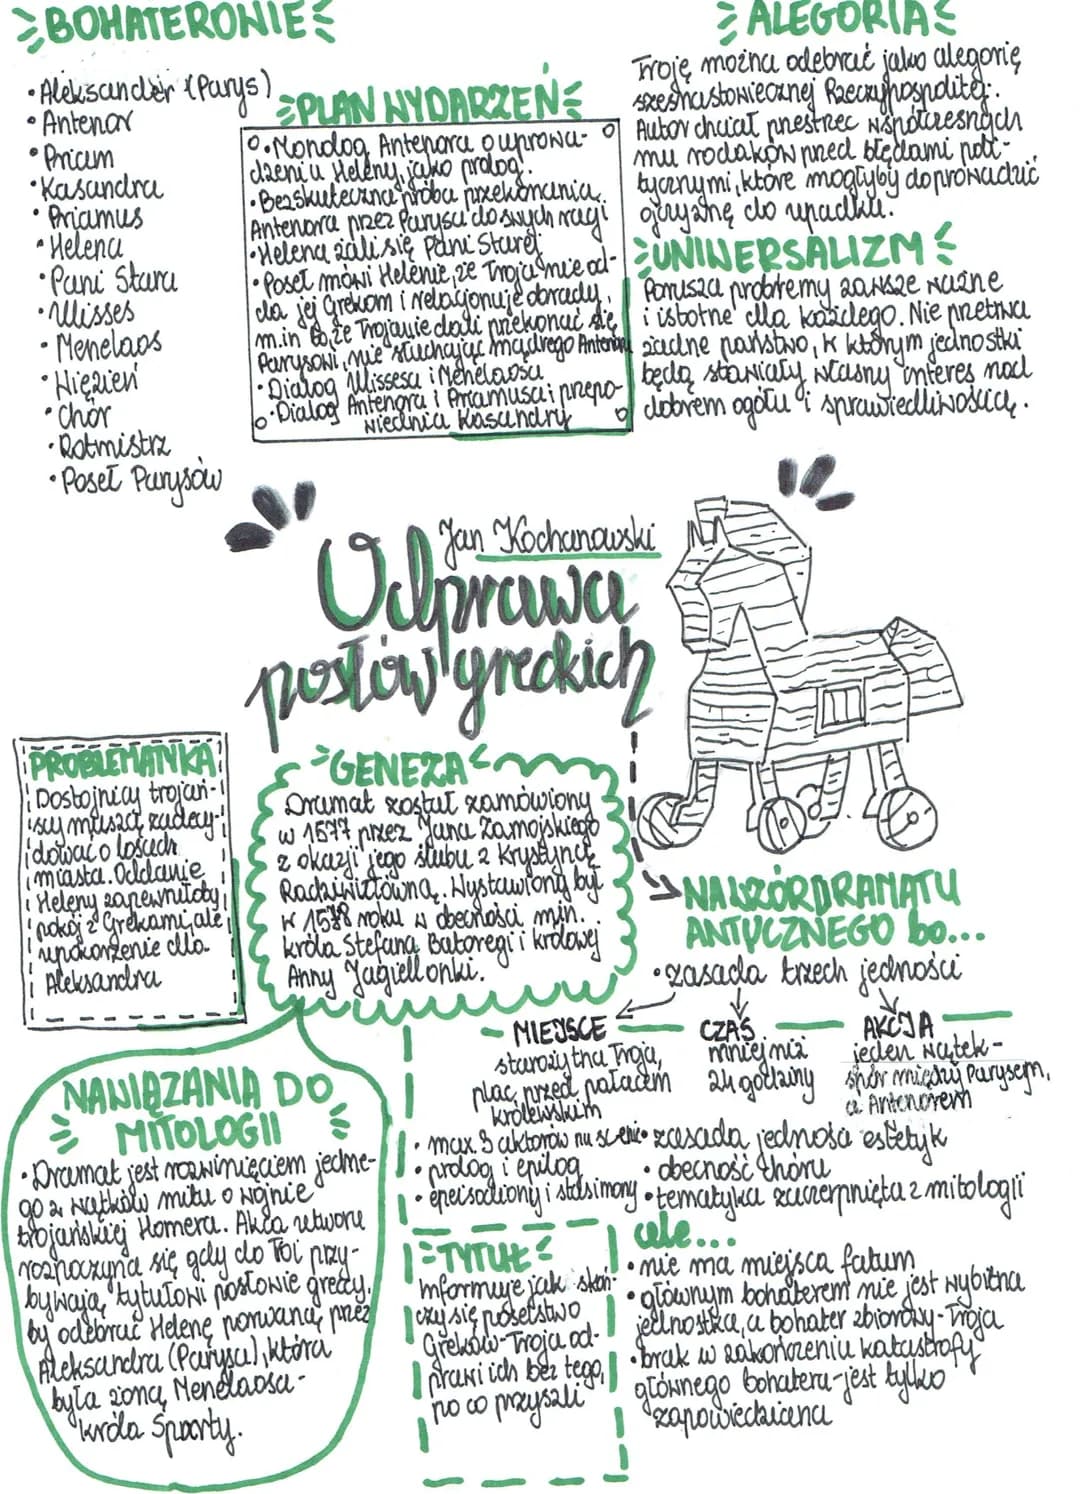 BOHATEROWIE
• Aleksander (Parys)
• Antenor
• Priam
• Kasandra
• Priamus
• Helena
• Pani Stara
• Ulisses
• Menelaos
• Więzień
• Chór
• Rotmistrz
• Poseł Parysów
PLAN WYDARZEŃ
• Monolog Antenora o uprowa-
dzeniu Heleny, jako prolog.
• Bezskuteczna próba przekonania
Antenora przez Parysa do swych racji
• Helena żali się Pani Starej
• Poseł mówi Helenie, że Troja nie od-
da jej Grekom i relacjonuje obrady,
m.in to, że Trojanie dali przekonać się
Parysowi, nie słuchając mądrego Antenora
• Dialog Ulissesa i Menelaosa
• Dialog Antenora i Priamusa i przepo-
wiednia Kasandry
ALEGORIA
Troję można odebrać jako alegorię
szesnastowiecznej Rzeczypospolitej.
Autor chciał przestrzec współczesnych
mu rodaków przed błędami poli-
tycznymi, które mogłyby doprowadzić
ojczyznę do upadku.
UNIWERSALIZM
Porusza problemy zawsze ważne
i istotne dla każdego. Nie przetrwa
żadne państwo, w którym jednostki
będą stawiały własny interes nad
dobrem ogółu i sprawiedliwością.
Jan Kochanowski
Odprawa
posłów greckich
PROBLEMATYKA
Dostojnicy trojań-
scy muszą zadecy-
dować o losach
miasta. Oddanie
Heleny zapewniłoby
pokój z Grekami, ale
upokorzenie dla
Aleksandra
GENEZA
Dramat został zamówiony
w 1577 przez Jana Zamojskiego
z okazji jego ślubu z Krystyną
Radziwiłłówną. Wystawiony był
w 1578 roku w obecności min.
króla Stefana Batorego i królowej
Anny Jagiellonki.
NA WZÓR DRAMATU
ANTYCZNEGO bo...
• zasada trzech jedności
MIEJSCE
starożytna Troja,
plac przed pałacem
królewskim
CZAS
mniej niż
24 godziny
AKCJA
jeden wątek -
spór między Parysem,
a Antenorem
• max. 3 aktorów na scenie
• prolog i epilog
• epeisodiony i stasimony
• zasada jedności estetyk
• obecność chóru
• tematyka zaczerpnięta z mitologii
NAWIĄZANIA DO
MITOLOGII
• Dramat jest rozwinięciem jedne-
go z wątków mitu o wojnie
trojańskiej Homera. Akca utworu
rozpoczyna się gdy do Toi przy-
bywają tytułowi posłowie greccy,
by odebrać Helenę porwaną przez
Aleksandra (Parysa), która
była żoną Menelaosa -
króla Sparty.
TYTUŁ
Informuje jak skoń-
czy się poselstwo
Greków - Troja od-
prawi ich bez tego,
po co przyszli
ale...
• nie ma miejsca fatum
• głównym bohaterem nie jest wybitna
jednostka, a bohater zbiorowy - Troja
• brak w zakończeniu katastrofy
głównego bohatera - jest tylko
zapowiedziana